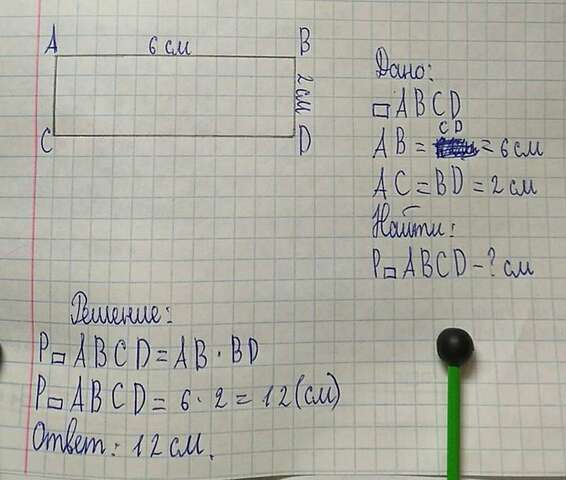 A 6 см B
2 см
C D
Дано:
▭ ABCD
AB = CD = 6 см
AC = BD = 2 см
Найти:
P▭ ABCD - ? см
Решение:
P▭ ABCD = AB · BD
P▭ ABCD = 6 · 2 = 12 (см)
Ответ: 12 см.